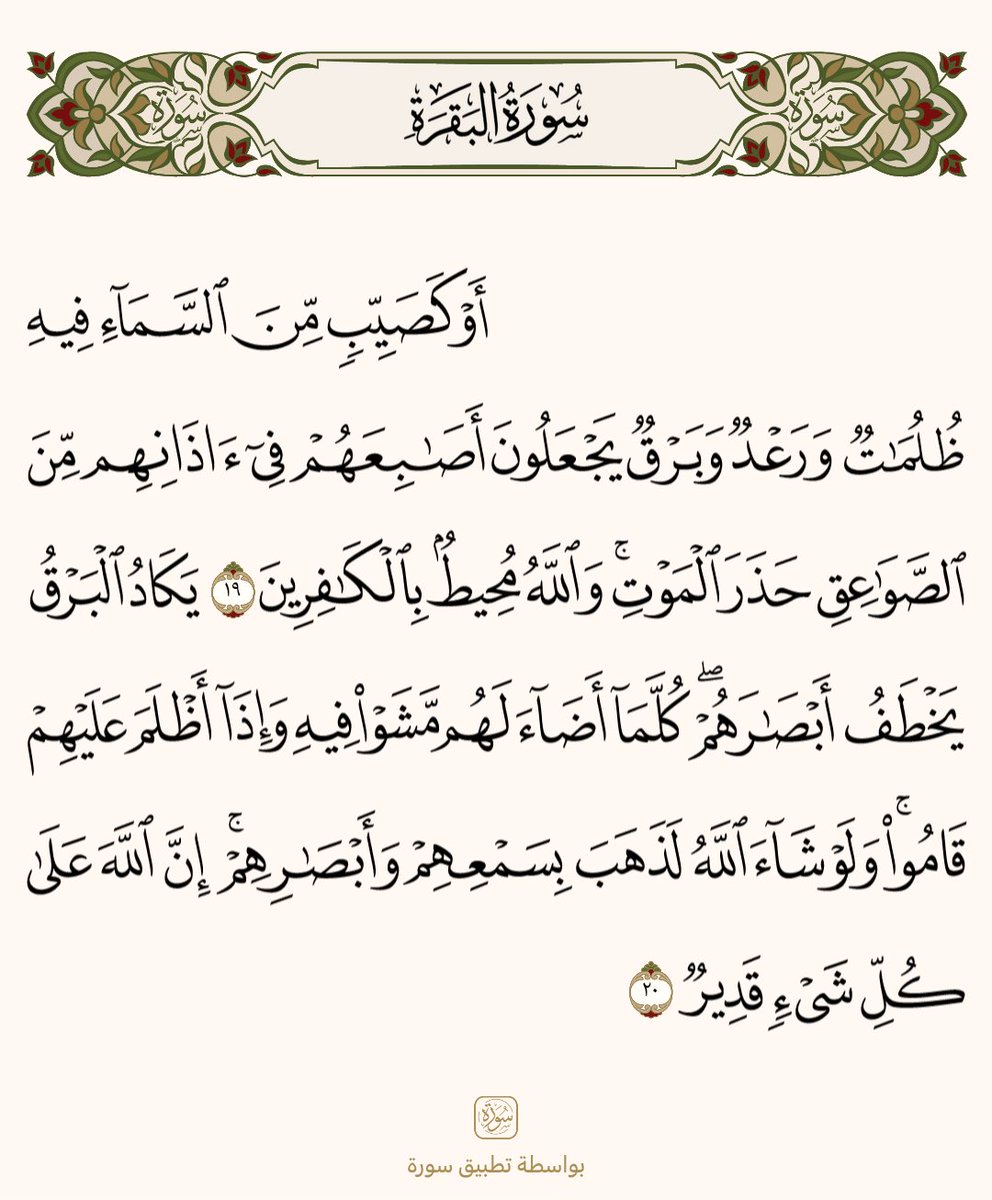 سورة
سُورَةُ البَقَرَةِ
سورة
أَوۡ كَصَيِّبٖ مِّنَ ٱلسَّمَآءِ فِيهِ
ظُلُمَٰتٞ وَرَعۡدٞ وَبَرۡقٞ يَجۡعَلُونَ أَصَٰبِعَهُمۡ فِيٓ ءَاذَانِهِم مِّنَ
ٱلصَّوَٰعِقِ حَذَرَ ٱلۡمَوۡتِۚ وَٱللَّهُ مُحِيطُۢ بِٱلۡكَٰفِرِينَ ١٩ يَكَادُ ٱلۡبَرۡقُ
يَخۡطَفُ أَبۡصَٰرَهُمۡۖ كُلَّمَآ أَضَآءَ لَهُم مَّشَوۡاْ فِيهِ وَإِذَآ أَظۡلَمَ عَلَيۡهِمۡ
قَامُواْۚ وَلَوۡ شَآءَ ٱللَّهُ لَذَهَبَ بِسَمۡعِهِمۡ وَأَبۡصَٰرِهِمۡۚ إِنَّ ٱللَّهَ عَلَىٰ
كُلِّ شَيۡءٖ قَدِيرٞ ٢٠
سورة
بواسطة تطبيق سورة